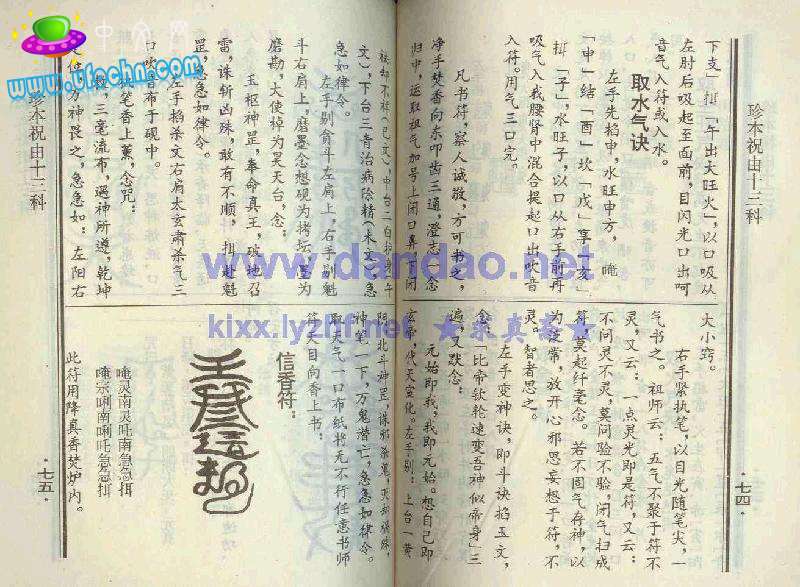 珍本祝由十三科
下支」掐「午出大旺火」,以口吸从
左肘后吸起至面前,目闪光口出呵
音气入符或入水。
取水气诀
左手先掐申,水旺申方,唵
「申」结「酉」坎「戌」享「亥」
掐「子」,水旺子,以口从右手前再
吸气入我腰肾中混合提起口出吹音
入符。用气三口完。
凡书符,察人诚敬,方可书之,
净手焚香向东叩齿三通,澄志存念
归中,运取祖气加号上闭口鼻
大小窍。
右手紧执笔,以目光随笔尖,一
气书之。祖师云:五气不聚于符不
灵,又云:一点灵光即是符,又云:
不问灵不灵,莫问验不验,闭气扫成
符莫起纤毫念。若不固气存神,以
为泛常,放开心邪思妄想于符,不
灵。智者思之。
左手变神诀,即斗诀掐玉文,
念「一比帝软轮速变吾神似帝身」三
遍,又默念:
元始即我,我即元始。想自己即
玄帝,代天宣化。左手剔:上台一黄
·七四·
珍本祝由十三科
祛却不祥(巳文),中台二白
文),下台三青治病除精(未文)急
急如律令。
左手剔贪斗左肩上,右手剔魁
斗右肩上,磨墨念想砚为拷坛,墨为
磨勘,大使掉为昊天台,念:
玉枢神罡,奉命真王,破地召
雷,诛斩凶殊,敢有不顺,押赴魁
罡,急急如律令。
左手掐杀文右肩太玄肃杀气三
口吹音布于砚中。
执笔香上薰,念咒:
毅三毫流布,遇神所遵,乾坤
方神畏之,急急如:左阳右
阴北斗神罡,诛邪荡鬼,灭却殊
神笔一下,万鬼潜亡,急急如律令。
取天气一口布纸书无不行任意书师
符天目向香上书:
信香符:
唵灵南灵吒南急急掐
唵宗唎南唎吒急急掐
此符用降真香焚炉内。
·七五·
www.ufochn.com
www.dandao.net
kixx.lyzhf.net ★求真斋★